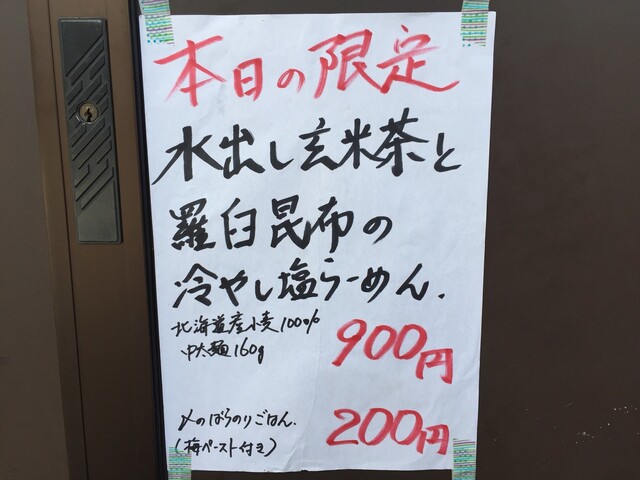 本日の限定
水出し玄米茶と
羅臼昆布の
冷やし塩らーめん.
北海道産小麦100%
中太麺160g
900円
〆のばらのりごはん.
(梅ペースト付き)
200円